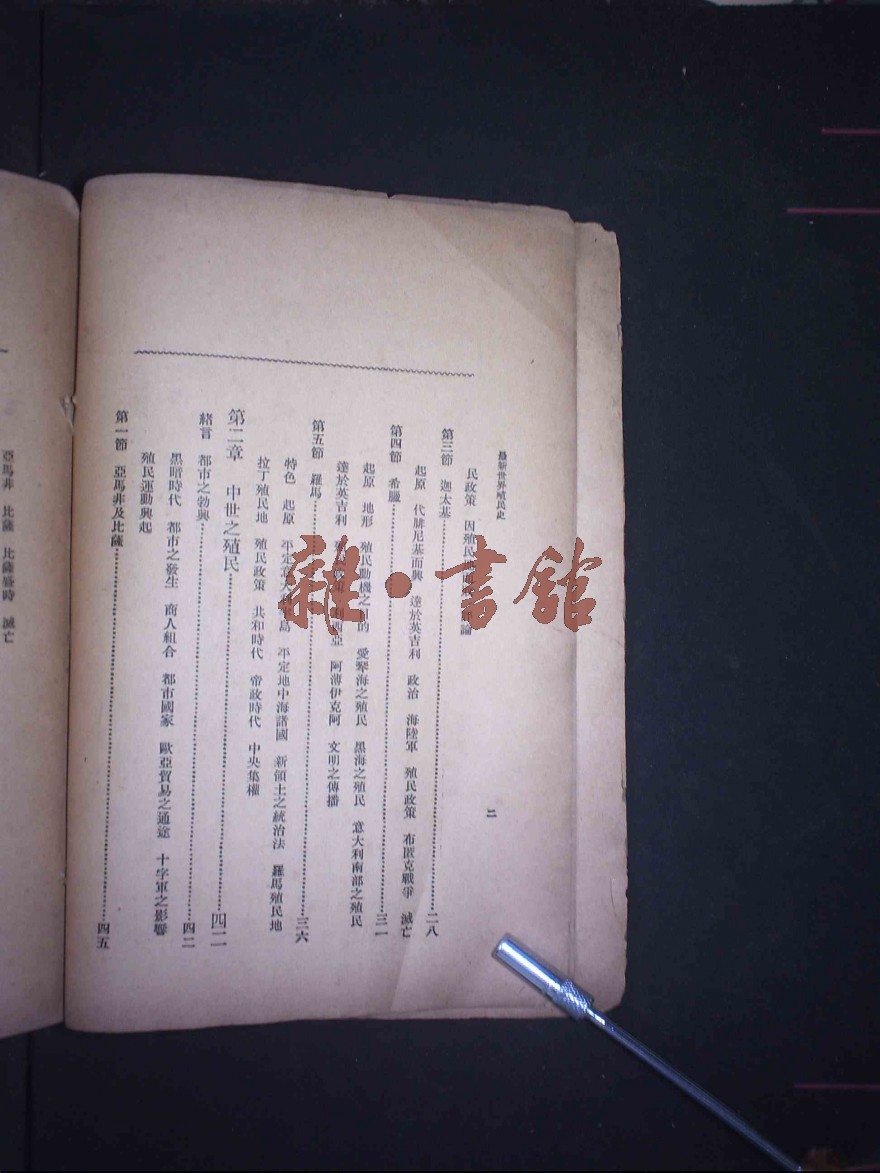 最新世界殖民史
二
民政策 因殖民 論
第三節 迦太基 二八
起原 代腓尼基而興 達於英吉利 政治 海陸軍 殖民政策 布匿克戰爭 滅亡
第四節 希臘 三一
起原 地形 殖民動機之目的 愛琴海之殖民 黑海之殖民 意大利南部之殖民
達於英吉利 亞 阿薄伊克阿 文明之傳播
第五節 羅馬 三六
特色 起原 平定意大利半島 平定地中海諸國 新領土之統治法 羅馬殖民地
拉丁殖民地 殖民政策 共和時代 帝政時代 中央集權
第二章 中世之殖民 四二
緒言 都市之勃興 四二
黑暗時代 都市之發生 商人組合 都市國家 歐亞貿易之通途 十字軍之影響
殖民運動興起
第一節 亞馬非及比薩 四五
亞馬非 比薩 比薩盛時 滅亡
雜·書館